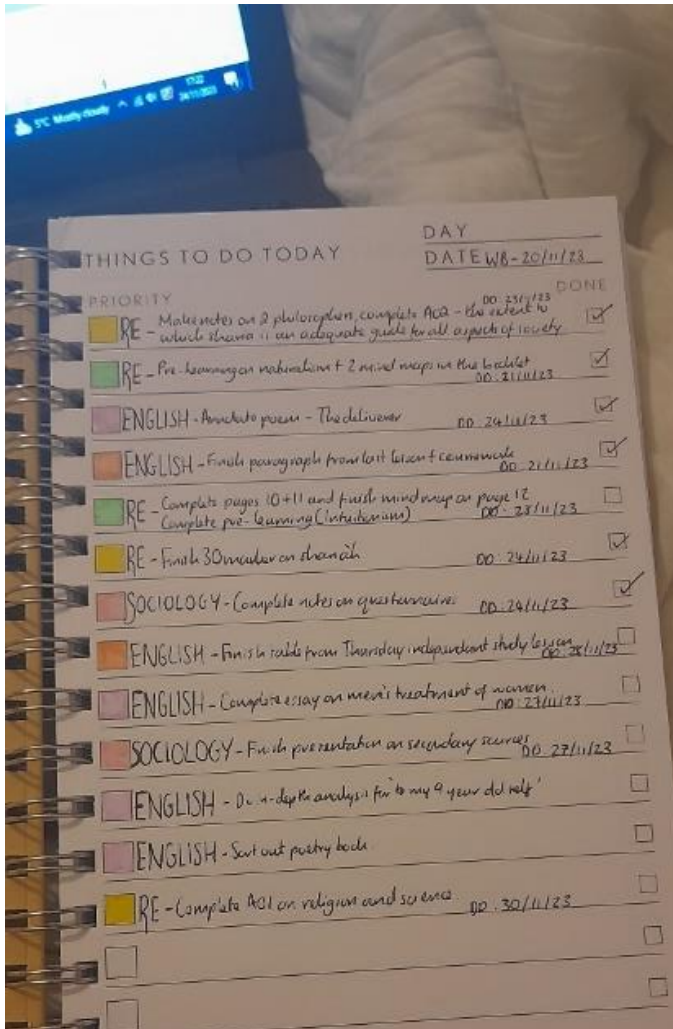 5°C Mostly cloudy
17:22
24/11/2023
DAY
THINGS TO DO TODAY
DATE WB-20/11/23
PRIORITY
DONE
DD: 23/11/23
RE - Make notes on 2 philosophers, complete AO2 - the extent to
which sharia is an adequate guide for all aspects of society
RE - Pre-learning on naturalism + 2 mind maps in the booklet
DD: 21/11/23
ENGLISH - Annotate poem - The deliverer DD: 24/11/23
ENGLISH - Finish paragraph from last lesson + coursework
DD: 21/11/23
RE - Complete pages 10+11 and finish mind map on page 12
Complete pre-learning (intuitionism) DD: 28/11/23
RE - Finish 30 marker on shariah DD: 24/11/23
SOCIOLOGY - Complete notes on questionnaires DD: 24/11/23
ENGLISH - Finish from Thursday independent study lesson
DD: 28/11/23
ENGLISH - Complete essay on men's treatment of women
DD: 27/11/23
SOCIOLOGY - Finish presentation on secondary sources
DD: 27/11/23
ENGLISH - Do in-depth analysis for 'to my 9 year old self'
ENGLISH - Sort out poetry book
RE - Complete AO1 on religion and science DD: 30/11/23